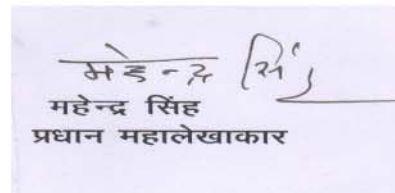 महेन्द्र सिंह
महेन्द्र सिंह
प्रधान महालेखाकार